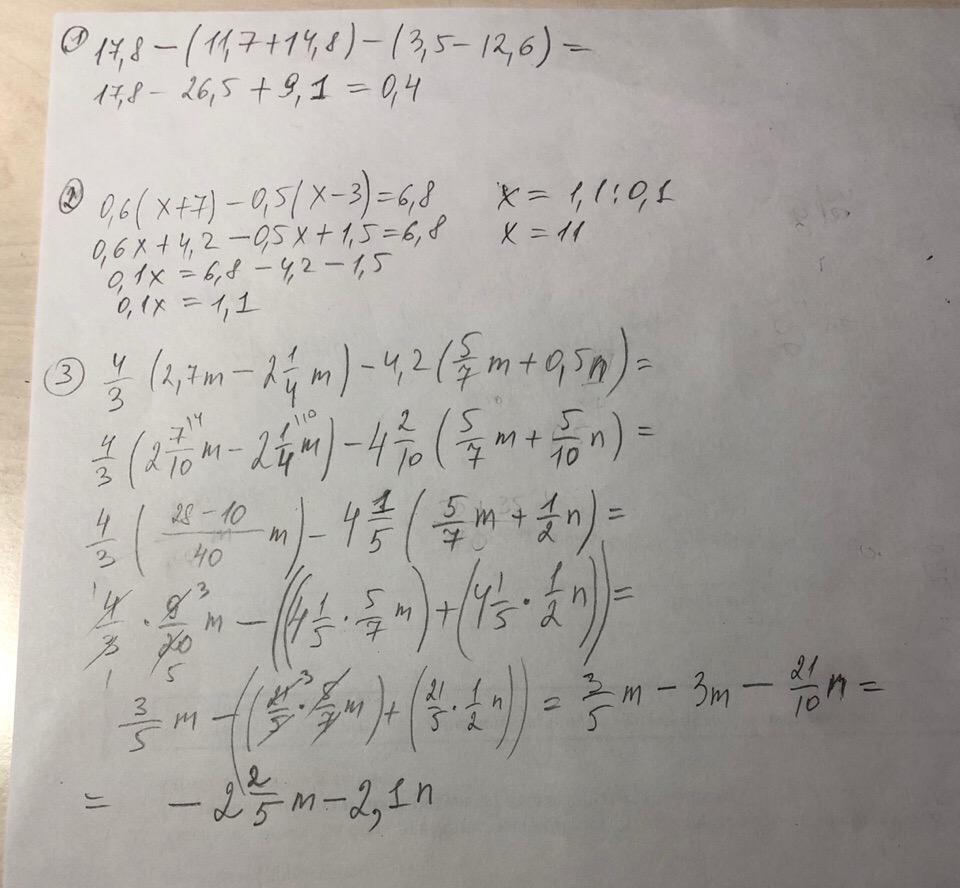 ① 17,8 – (11,7 + 14,8) – (3,5 – 12,6) =
17,8 – 26,5 + 9,1 = 0,4
② 0,6(x+7) – 0,5(x–3) = 6,8
0,6x + 4,2 – 0,5x + 1,5 = 6,8
0,1x = 6,8 – 4,2 – 1,5
0,1x = 1,1
x = 1,1 : 0,1
x = 11
③ 4/3 (2,7m – 2 1/4 m) – 4,2 (5/7 m + 0,5n) =
4/3 (2 7/10 \4 m – 2 1/4 \10 m) – 4 2/10 (5/7 m + 5/10 n) =
4/3 ((28 – 10)/40 m) – 4 1/5 (5/7 m + 1/2 n) =
1 4/3 1 · 9 3/20 5 m – ((4 1/5 · 5/7 m) + (4 1/5 · 1/2 n)) =
3/5 m – ((21 3/5 · 5/7 m) + (21/5 · 1/2 n)) = 3/5 m – 3m – 21/10 n =
= – 2 2/5 m – 2,1n